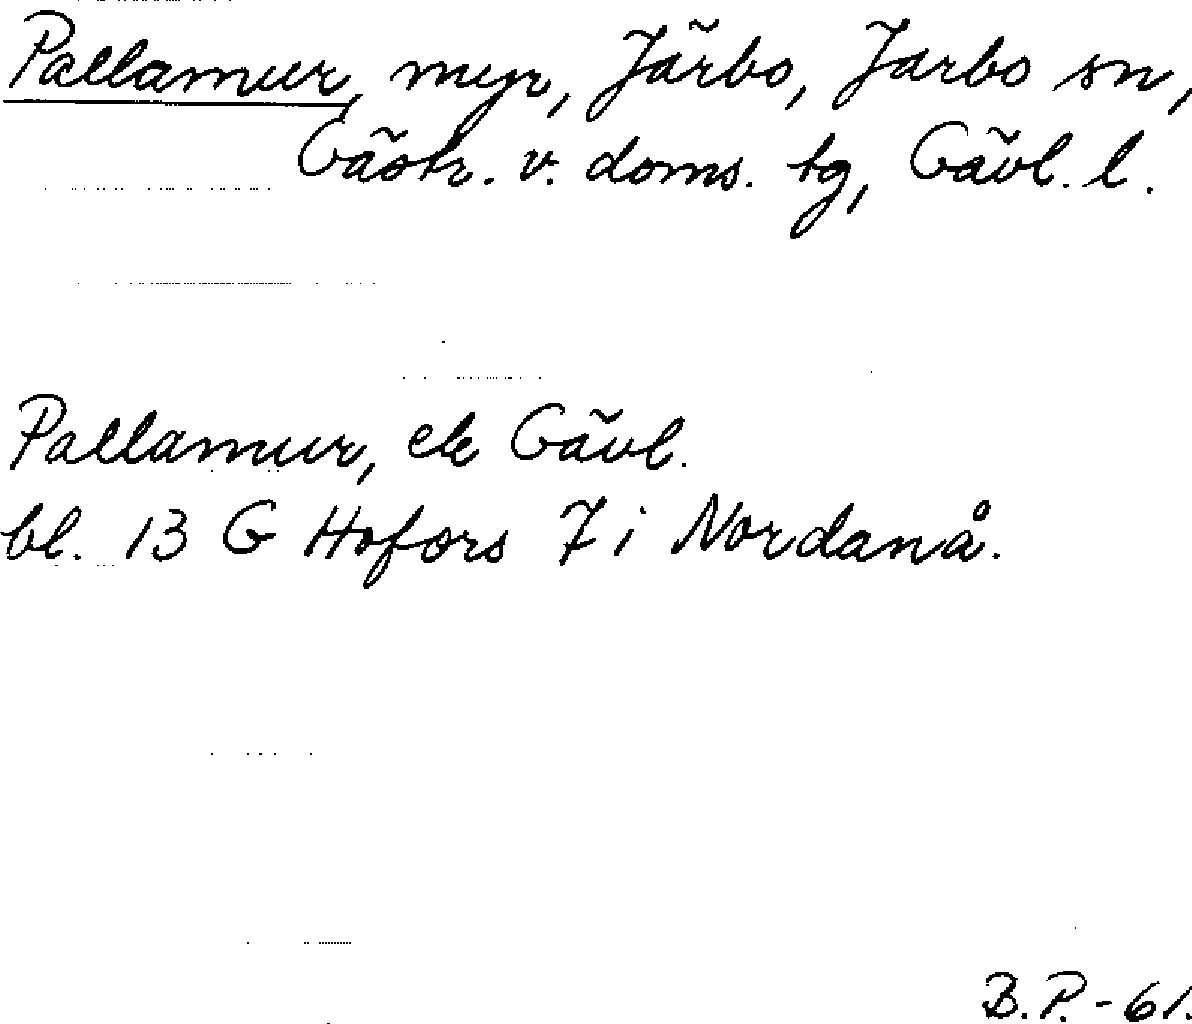 Pallamur, myr, Järbo, Jarbo sn,
Gästr. v. doms. tg, Gävl. l.
Pallamur, ek Gävl.
bl. 13 G Hofors 7 i Nordanå.
B.P. - 61.